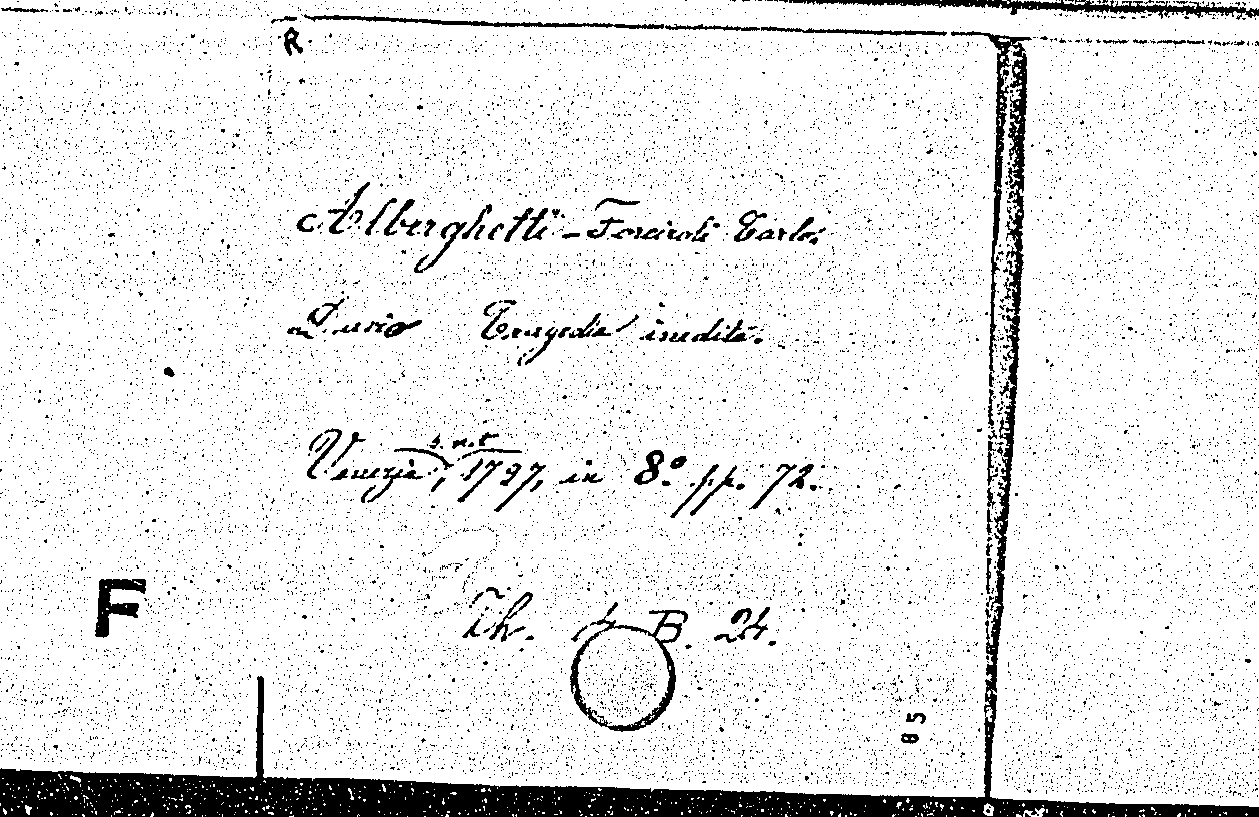 R.
Alberghetti-Forciroli Carlo.
Dario Tragedia inedita.
s. n. t.
Venezia, 1797, in 8.º pp. 72.
Th. B. 24.
F
05